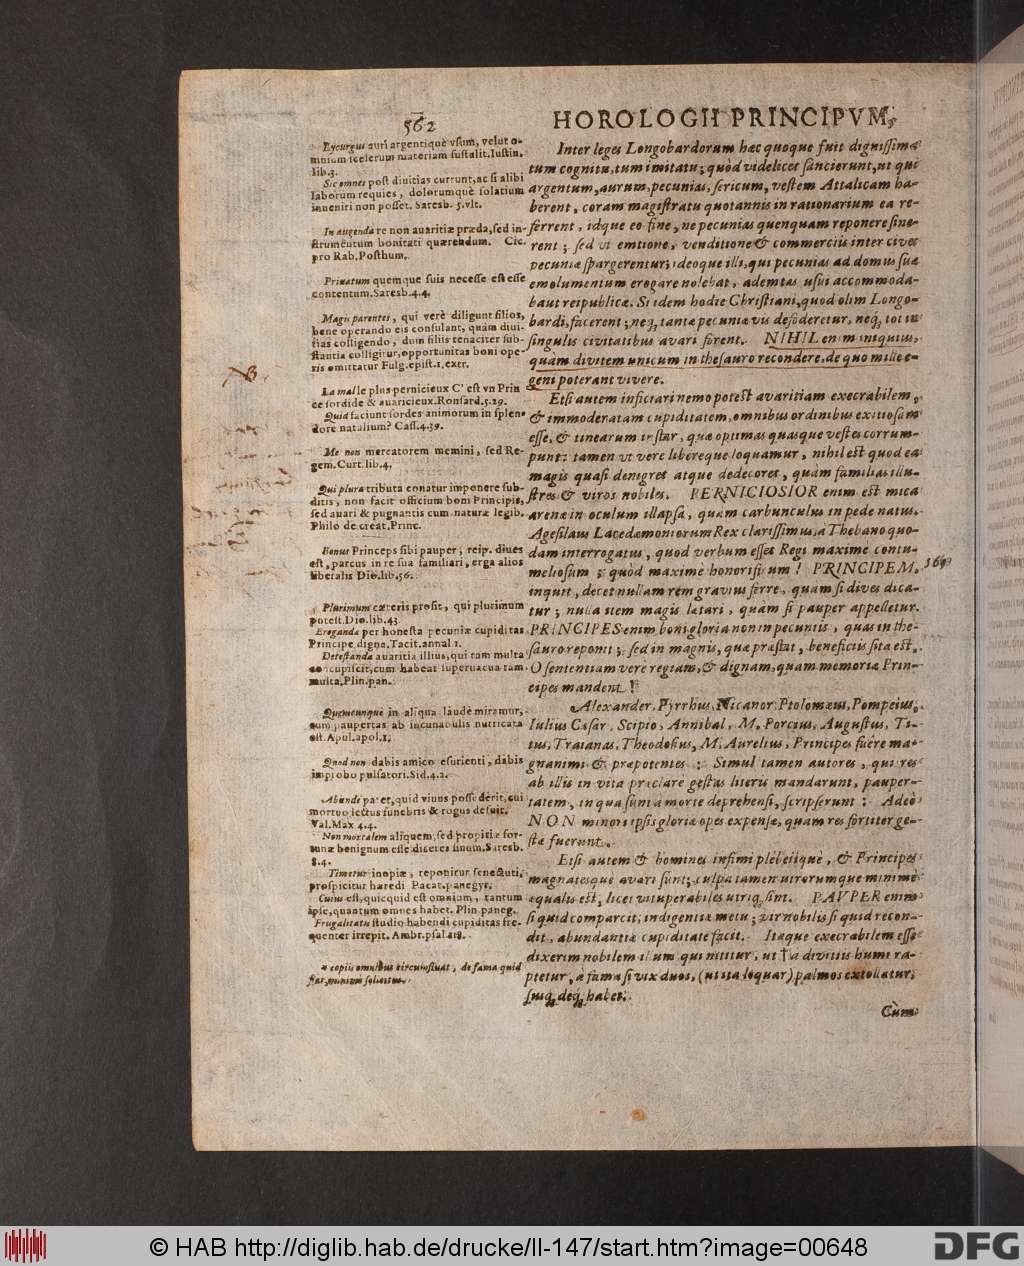 562
HOROLOGII PRINCIPVM,
Lycurgus auri argentiquè vsum, velut o-
mnium scelerum materiam sustulit. Iustin.
lib.3.
Sic omnes post divitias currunt, ac si alibi
laborum requies, dolorumquè solatium
inveniri non posset. Saresb. 5. vlt.
In augenda re non avaritiæ præda, sed in-
strumentum bonitati quærendum. Cic.
pro Rab. Posthum.
Privatum quemque suis necesse est esse
contentum. Saresb. 4.4.
Magis parentes, qui verè diligunt filios,
bene operando eis consulant, quàm divi-
tias colligendo, dum filiis tenaciter sub-
stantia colligitur, opportunitas boni ope-
ris omittatur Fulg. epist. 1. extr.
NB.
La mal le plus pernicieux C' est vn Prin
ce sordide & avaricieux. Ronsard. 5.29.
Quid faciunt sordes animorum in splen-
dore natalium? Cass. 4.39.
Me non mercatorem memini, sed Re-
gem. Curt. lib. 4.
Qui plura tributa conatur imponere sub-
ditis, non facit officium boni Principis,
sed avari & pugnantis cum naturæ legib.
Philo de creat. Princ.
Bonus Princeps sibi pauper; reip. dives
est, parcus in re sua familiari, erga alios
liberalis Dio. lib. 56.
Plurimum cæteris prosit, qui plurimum
potest. Dio. lib. 43
Eroganda per honesta pecuniæ cupiditas
Principe digna. Tacit. annal 1.
Detestanda avaritia illius, qui tam multa
concupiscit, cum habeat supervacua tam
multa. Plin. pan.
Quemcunque in aliqua laude miramur,
eum paupertas ab incunabulis nutricata
est. Apul. apol. 1.
Quod non dabis amico esurienti, dabis
improbo pulsatori. Sid. 4.2.
Abundè patet, quid vivus possederit, cui
mortuo lectus funebris & rogus defuit.
Val. Max 4.4.
Non mortalem aliquem, sed propitiæ for-
tunæ benignum esse diceres sinum. Saresb.
8.4.
Timetur inopiæ, reponitur senectuti,
prospicitur hæredi Pacat. panegyr.
Cuius est, quicquid est omnium, tantum
ipse, quantum omnes habet. Plin. paneg.
Frugalitatis studio habendi cupiditas fre-
quenter irrepit. Ambr. psal. 118.
* copiis omnibus circumfluat, de fama quid
fiat, minium solicitus.
Inter leges Longobardorum hæc quoque fuit dignissima
tum cognitu, tum imitatu; quòd videlicet sancierunt, ut qui
argentum, aurum, pecunias, sericum, vestem Attalicam ha-
berent, coram magistratu quotannis in rationarium ea re-
ferrent, idque eo fine, ne pecunias quenquam reponere sine-
rent; sed ut emtione, venditione & commerciis inter cives
pecuniæ spargerentur; ideoque illi, qui pecunias ad domus suæ
emolumentum erogare nolebat, ademtas usui accommoda-
baut reipublicæ. Si idem hodie Christiani, quod olim Longo-
bardi, facerent; neq; tantæ pecuniæ vis defoderetur, neq; tot in
singulis civitatibus avari forent. NIHIL enim iniquius,
quàm divitem unicum in thesauro recondere, de quo mille e-
geni poterant vivere.
Etsi autem inficiari nemo potest avaritiam execrabilem,
& immoderatam cupiditatem, omnibus ordinibus exitiosam
esse, & tinearum instar, quæ optimas quasque vestes corrum-
punt: tamen ut vere libereque loquamur, nihil est quod ea
magis quasi denigret atque dedecoret, quàm familias illu-
stres & viros nobiles. PERNICIOSIOR enim est mica
arenæ in oculum illapsa, quam carbunculus in pede natus.
Agesilaus Lacedæmoniorum Rex clarissimus, a Thebano quo-
dam interrogatus, quod verbum esset Regi maxime contu-
meliosum; & quòd maxime honorificum? PRINCIPEM,
inquit, decet nullam rem gravius ferre, quam si dives dica-
tur; nulla item magis lætari, quam si pauper appelletur.
PRINCIPES enim boni gloria non in pecuniis, quas in the-
sauro reponit; sed in magnis, quæ præstat, beneficiis sita est.
O sententiam vere regiam, & dignam, quam memoriæ Prin-
cipes mandent!
Alexander, Pyrrhus, Nicanor, Ptolomæus, Pompeius,
Iulius Cæsar, Scipio, Annibal, M. Porcius, Augustus, Ti-
tus, Traianas, Theodosius, M. Aurelius, Principes fuêre ma-
gnanimi & præpotentes: Simul tamen autores, qui res
ab illis in vita præclare gestas literis mandarunt, pauper-
tatem, in qua sunt a morte deprehensi, scripserunt: Adeò
NON minori ipsis gloriæ opes expensæ, quam res fortiter ge-
stæ fuerunt.
Etsi autem & homines infimi plebeiiquè, & Principes
magnatesque avari sunt; culpa tamen utrorumque minime
æqualis est, licet vituperabiles utriq; sint. PAVPER enim
si quid comparcit, indigentiæ metu; vir nobilis si quid recon-
dit, abundantiæ cupiditate facit. Itaque execrabilem esse
dixerim nobilem illum qui nititur, ut † a divitiis humi ra-
ptetur, a fama si vix duos, (ut ita loquar) palmos extollatur;
suiq; deq; habet.
Cùm